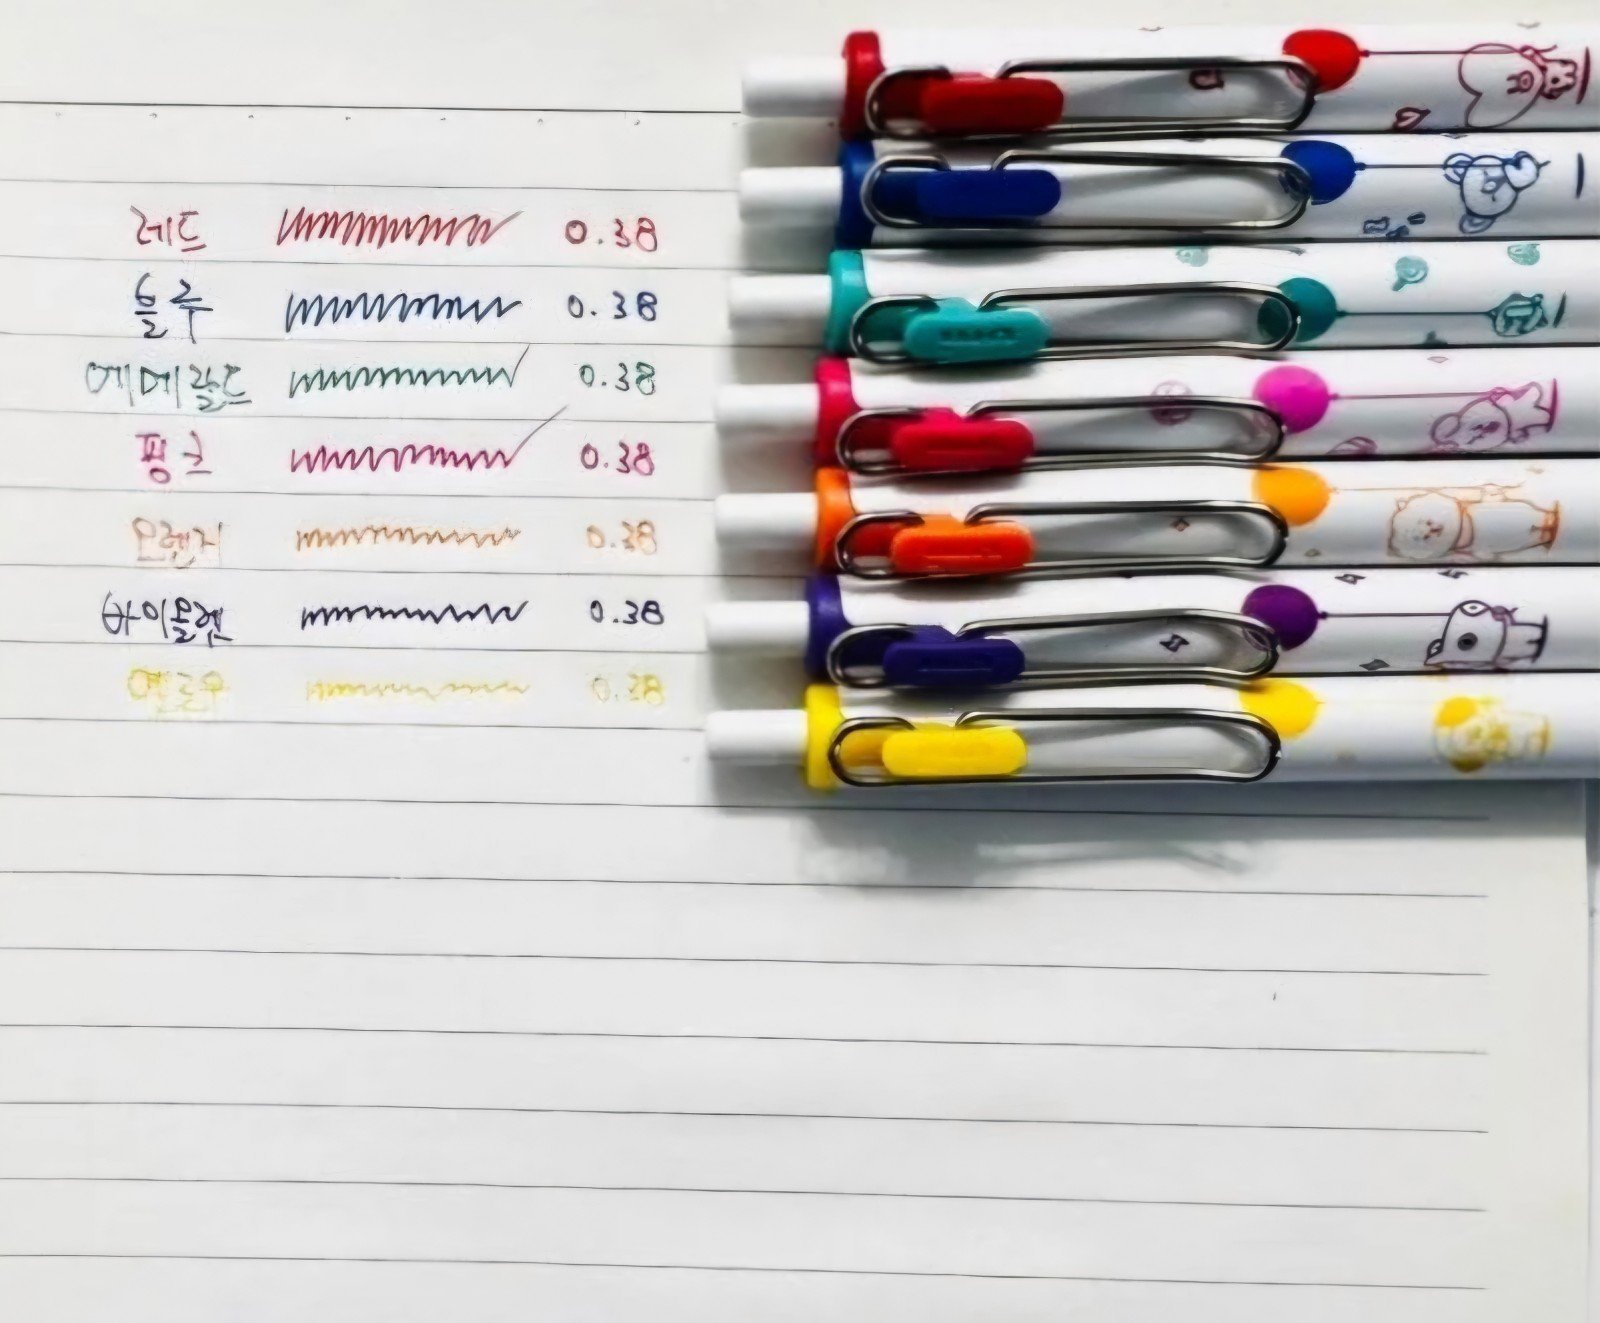 레드 0.38
블루 0.38
에메랄드 0.38
핑크 0.38
오렌지 0.38
바이올렛 0.38
옐로우 0.38